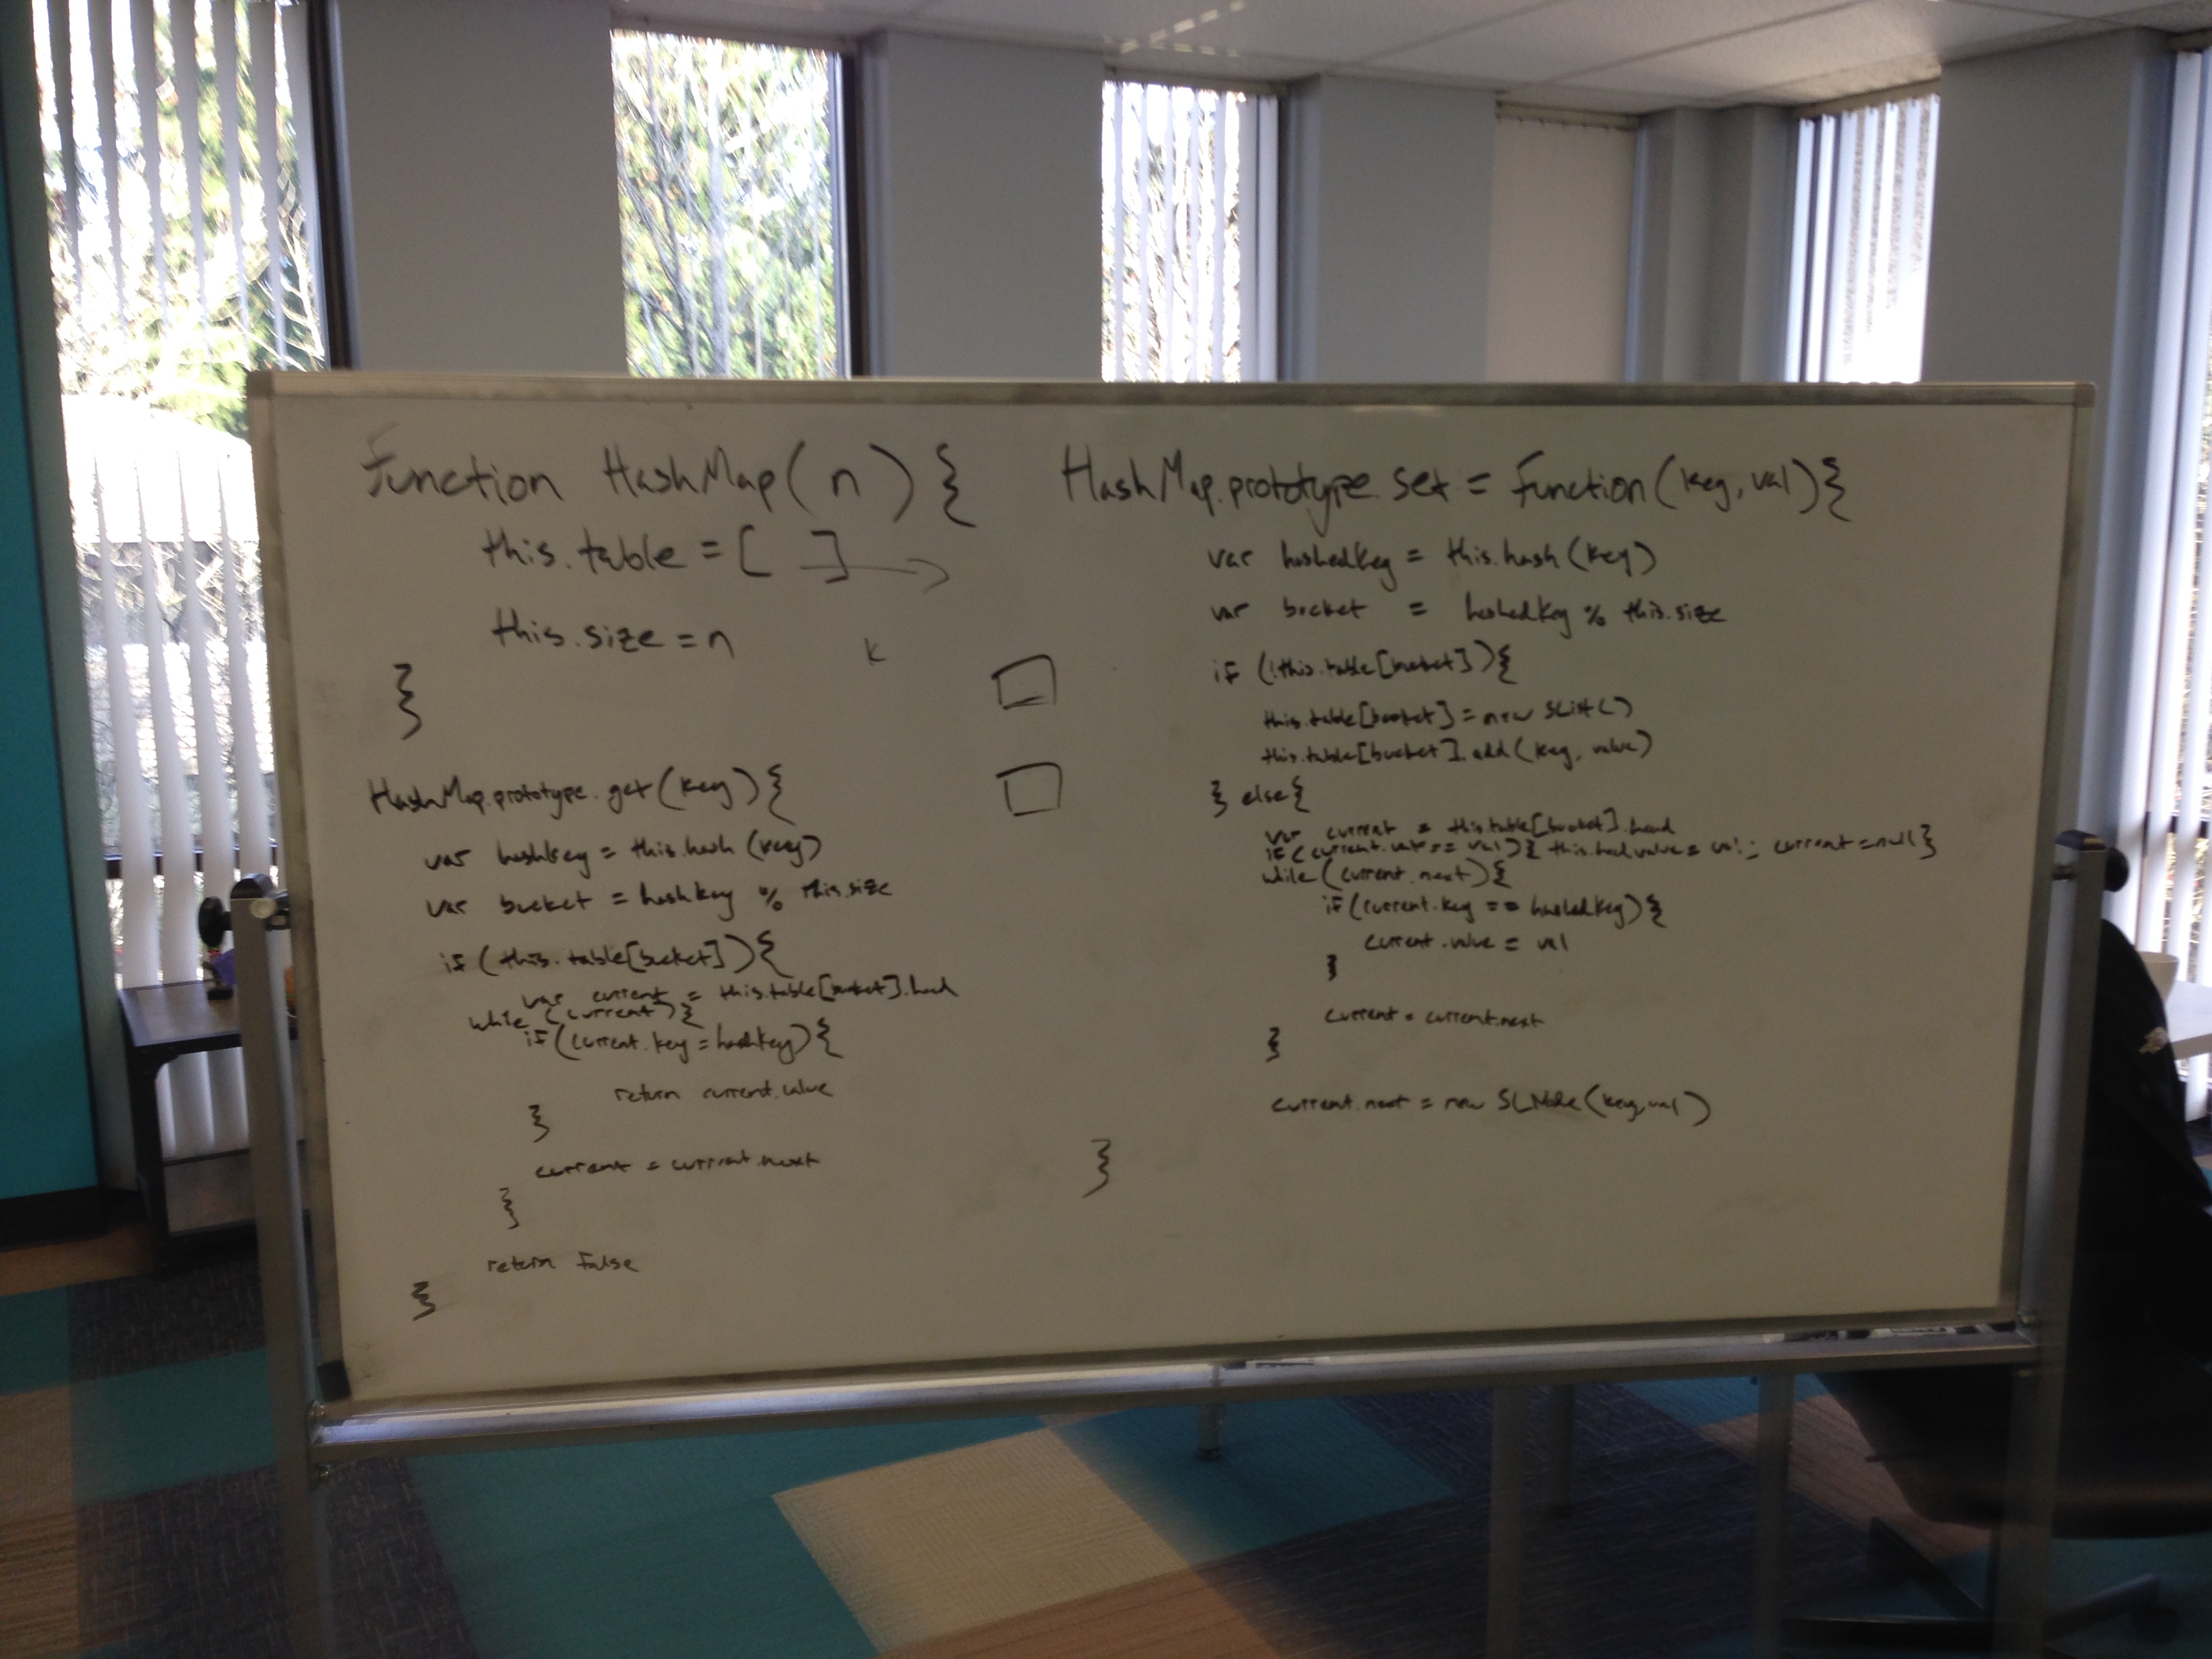 Function HashMap(n) {
this.table = [ ]
this.size = n
K
}
HashMap.prototype.get(key){
var hashkey = this.hash(key)
var bucket = hashkey % this.size
if (this.table[bucket]){
var current = this.table[bucket].head
while (current) {
if(current.key = hashkey){
return current.value
}
current = current.next
}
return False
}
HashMap.prototype.set = Function(key, val){
var hashedkey = this.hash(key)
var bucket = hashedkey % this.size
if (!this.table[bucket]){
this.table[bucket] = new SList()
this.table[bucket].add(key, value)
} else {
var current = this.table[bucket].head
if( == val){ this.head.value = val; current = null }
while (current.next){
if(current.key == hashedkey){
current.value = val
}
current = current.next
}
current.next = new SLNode(key, val)
}